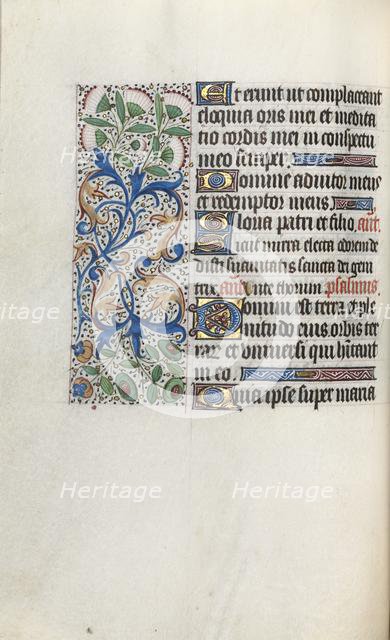 Et erunt ut complaceant
eloquia oris mei et medita
tio cordis mei in conspectu
meo semper
Domine adiutor meus
et redemptor meus
Gloria patri et filio añ.
Sicut mirra electa odorem de
disti suavitatis sancta dei geni
trix añ. Ante thorum psalmus
Domini est terra et ple
nitudo eius orbis ter
rar et universi qui habitant
in eo.
Quia ipse super maria
Heritage
Heritage
Heritage
Heritage
Heritage
Heritage